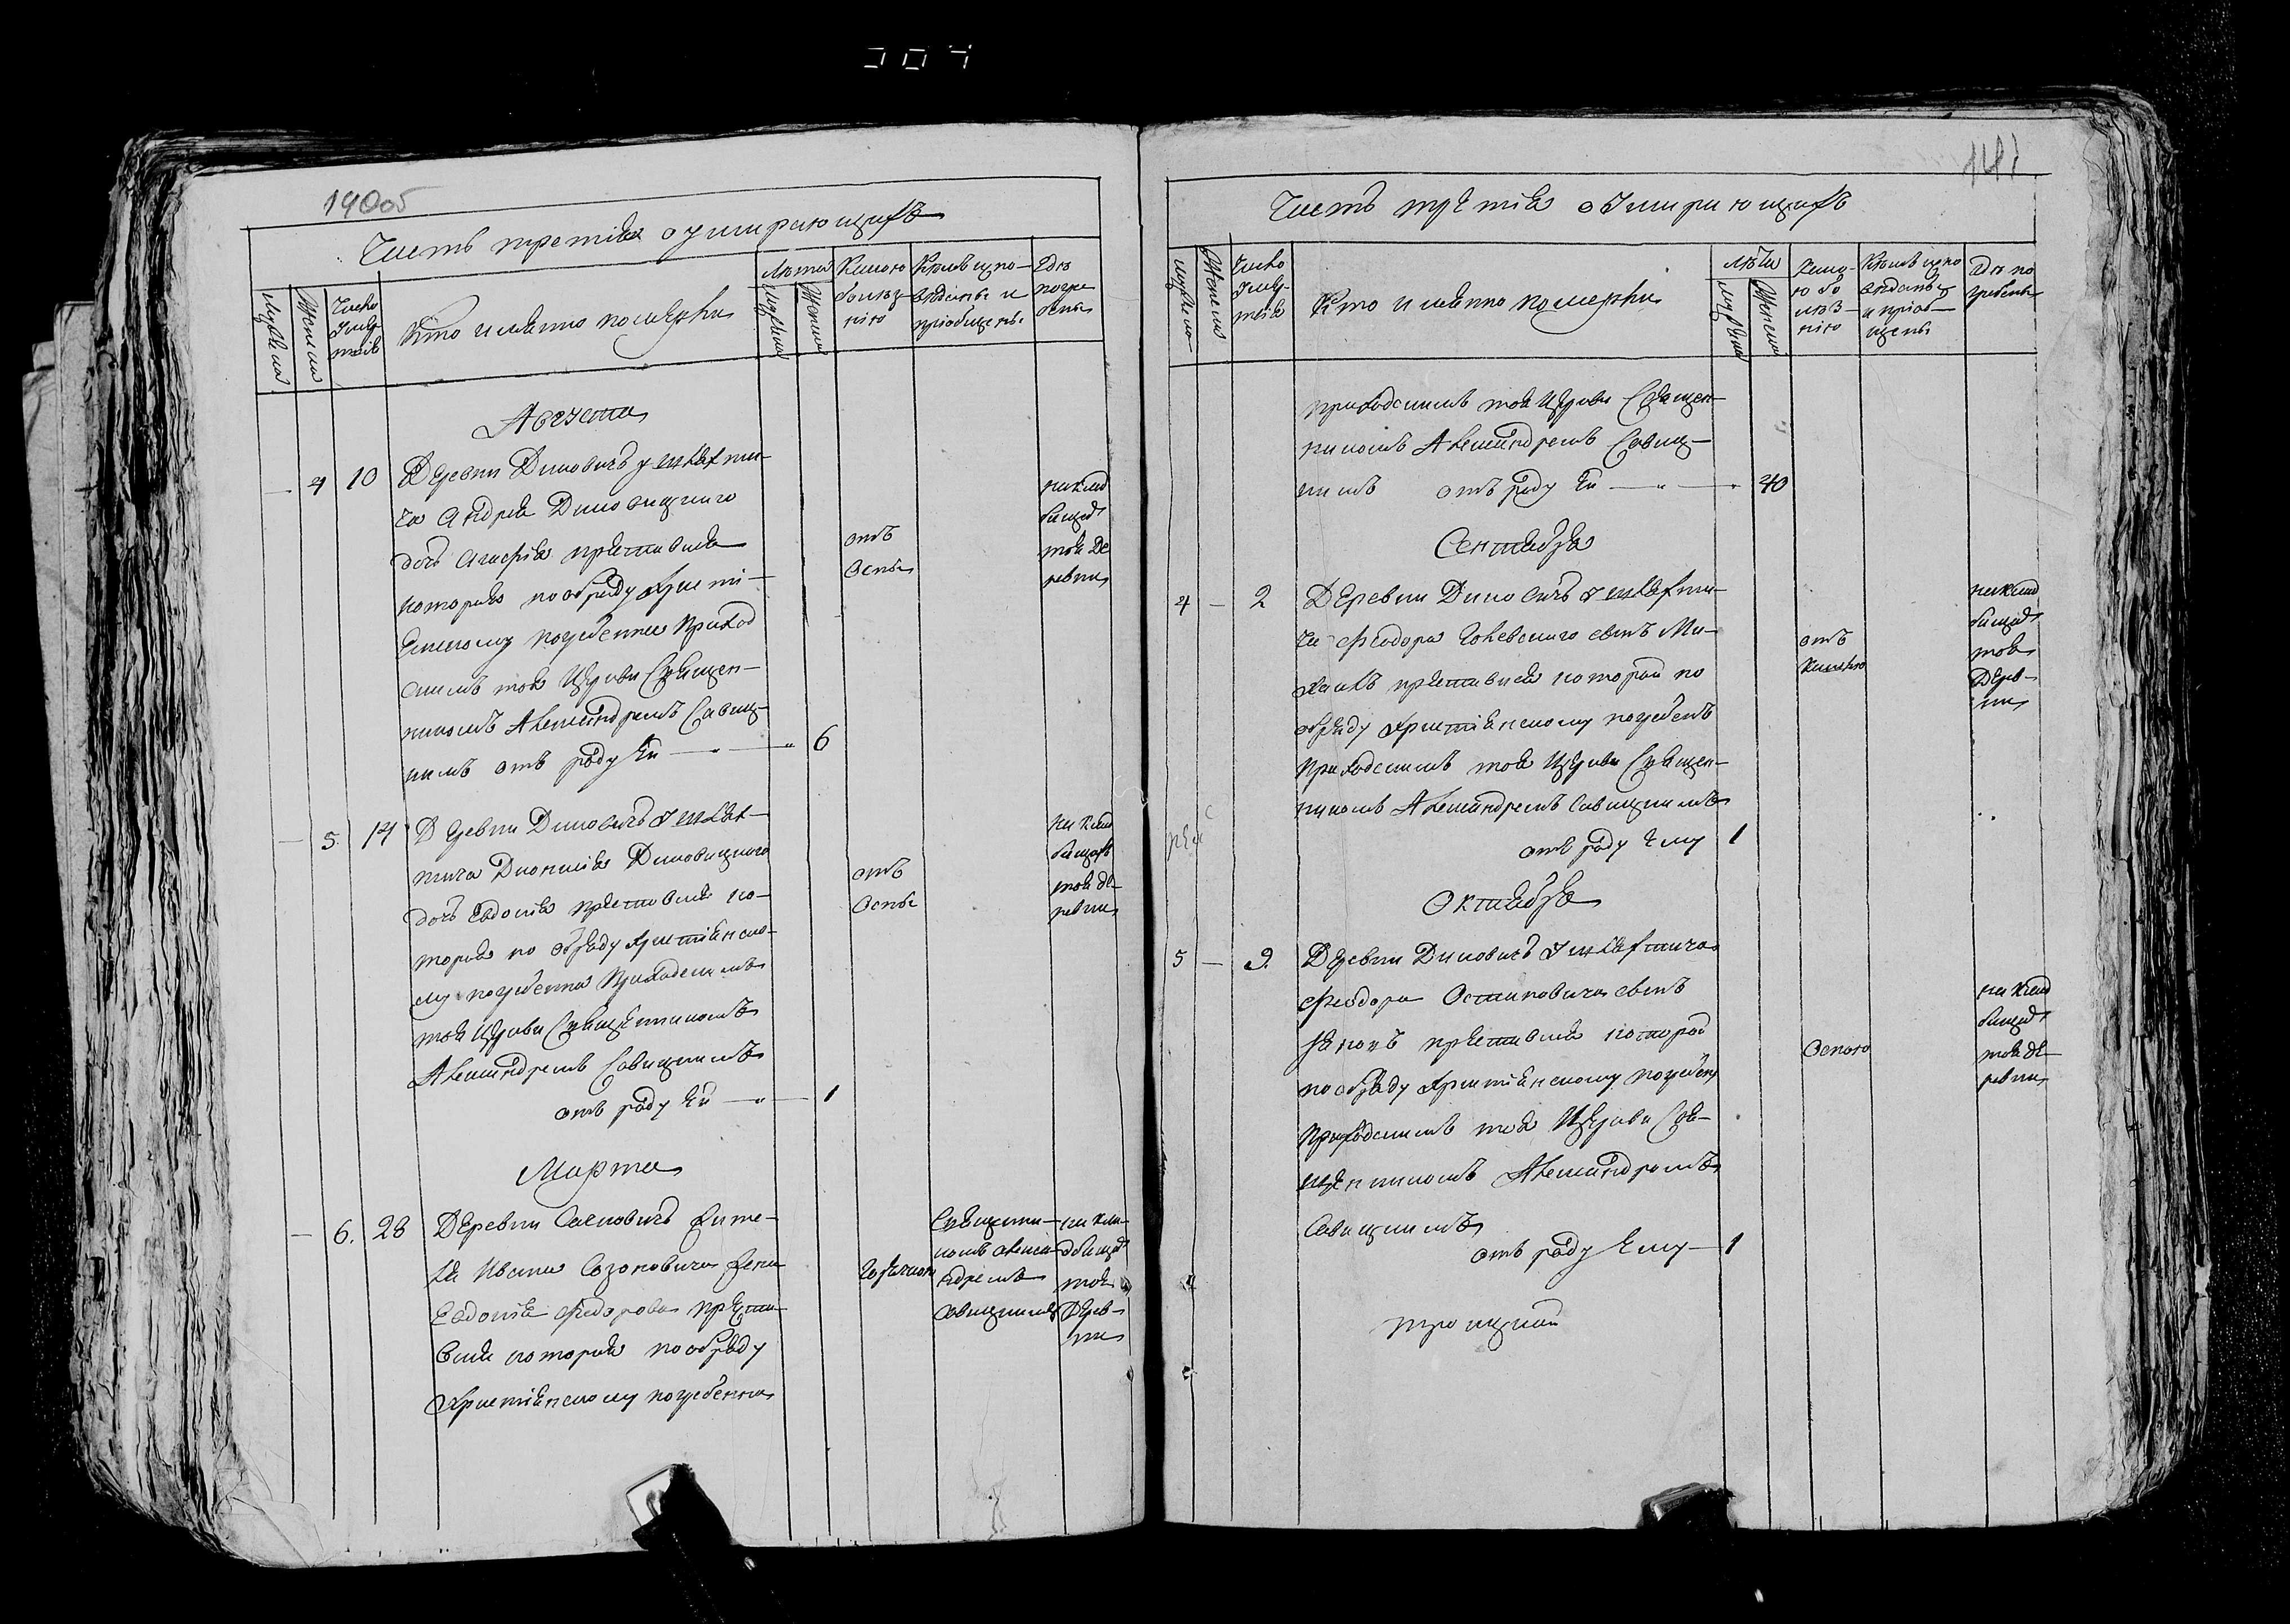 304
140об
Часть третіа о умирающихъ
мужеска
Женска
Число
Умер
твіа
Кто именно померли
Лѣта
мужеска
Женска
Какою
болѣз
нію
Кѣмъ испо-
вѣданы и
приобщены
Гдѣ
погре
бены
Августа
— 4 10 Деревни Диковичъ у шляхти-
ча Андреа Диковицкаго
дочь Агафіа престависа
котораа по обряду христі-
анскому погребенна приход
скимъ тоа Церкви Священ-
никомъ Александремъ Савиц-
кимъ отъ роду ей — 6
отъ
Оспы
на клад
бищѣ
тоа Де
ревни
— 5. 14 Деревни Диковичъ у шлях-
тича Дионисіа Диковицкаго
дочь Евдокіа престависа ко-
тораа по обряду христіанско-
му погребенна Приходскимъ
тоа Церкви Священникомъ
Александремъ Савицкимъ
отъ роду ей — 1
отъ
Оспы
на клад
бищѣ
тоа де-
ревни
Марта
— 6. 28 Деревни Сачковичъ жите-
ла Ивана Созоновича жена
Евдокіа Федорова преста-
виса котораа по обряду
христіанскому погребенна
Горячкою
Священни-
комъ Алекса-
ндремъ
Савицкимъ
на кла-
дбищѣ
тоа
Дерев-
ни
141
Часть третіа о Умирающихъ
мужеска
Женска
Число
Умер
твіа
Кто именно померли
лѣта
мужеска
Женска
Како-
ю бо
лѣз-
нію
Кѣмъ испо
вѣданы
и приоб-
щены
Гдѣ по
гребены
приходскимъ тоа Церкви Священ-
никомъ Александремъ Савиц-
кимъ отъ роду ей — 40
Сентября
4 — 2 Деревни Диковичъ у шляхти-
ча Феодора сынъ Ми-
хаилъ престависа которой по
обряду христіанскому погребенъ
Приходскимъ тоа Церкви Священ-
никомъ Александремъ Савицкимъ
отъ роду ему 1
отъ
на клад
бищѣ
тоа
Дерев-
ни
Октября
5 — 9. Деревни Диковичъ у шляхтича
Феодора Остаповича сынъ
престависа которой
по обряду христіанскому погребен
Приходскимъ тоа Церкви Свя-
щенникомъ Александромъ
Савицкимъ
отъ роду ему — 1
Оспою
на клад
бищѣ
тоа де-
ревни
Троицкой